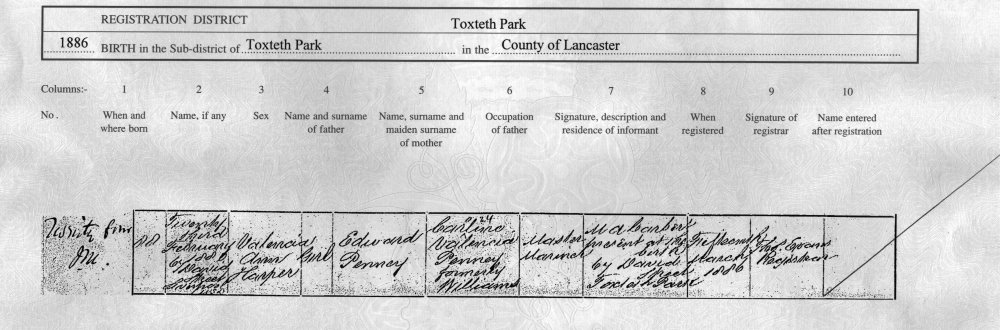 REGISTRATION DISTRICT Toxteth Park
1886 BIRTH in the Sub-district of Toxteth Park in the County of Lancaster
Columns:- 1 2 3 4 5 6 7 8 9 10
No. When and where born Name, if any Sex Name and surname of father Name, surname and maiden surname of mother Occupation of father Signature, description and residence of informant When registered Signature of registrar Name entered after registration
Twenty
third
February
1886
David
Street
Valencia
Ann
Harper
Girl
Edward
Penney
Carline
Valencia
Penney
formerly
Williams
Master
Mariner
present at the
birth
David
Street
Toxteth Park
Fifteenth
March
1886
Evans
Registrar